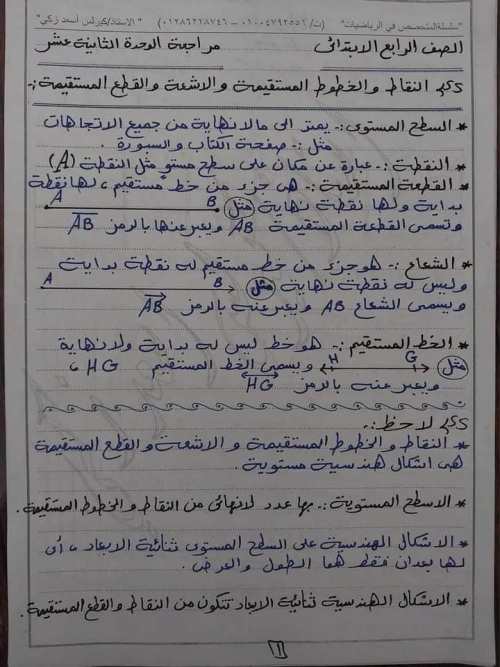 "سلسلة المتخصص في الرياضيات" (ت/ ٠١٠٠٤٧٩٢٥٥٦ – ٠١٢٨٦٢٢٨٧٤٦) " الاستاذ/كيرلس أسعد زكي"
الصف الرابع الابتدائى مراجعة الوحدة الثانية عشر
النقاط والخطوط المستقيمة والاشعة والقطع المستقيمة :-
* السطح المستوى :- يمتد الى مالانهاية من جميع الاتجاهات
مثل :- صفحة الكتاب والسبورة .
* النقطة :- عبارة عن مكان على سطح مستو مثل النقطة (A)
* القطعة المستقيمة :- هى جزء من خط مستقيم ، لها نقطة
بداية ولها نقطة نهاية مثل A B
وتسمى القطعة المستقيمة AB ويعبر عنها بالرمز AB
* الشعاع :- هو جزء من خط مستقيم له نقطة بداية
وليس له نقطة نهاية مثل A B
ويسمى الشعاع AB ويعبر عنه بالرمز AB
* الخط المستقيم :- هو خط ليس له بداية ولا نهاية
مثل H G ويسمى الخط المستقيم HG ،
ويعبر عنه بالرمز HG
لاحظ :-
* النقاط والخطوط المستقيمة والاشعة والقطع المستقيمة
هى اشكال هندسية مستوية .
* الاسطح المستوية :- بها عدد لانهائى من النقاط والخطوط المستقيمة .
* الاشكال الهندسية على السطح المستوى ثنائية الابعاد ، أى
لها بعدان فقط هما الطول والعرض .
* الاشكال الهندسية ثنائية الابعاد تتكون من النقاط والقطع المستقيمة .
١